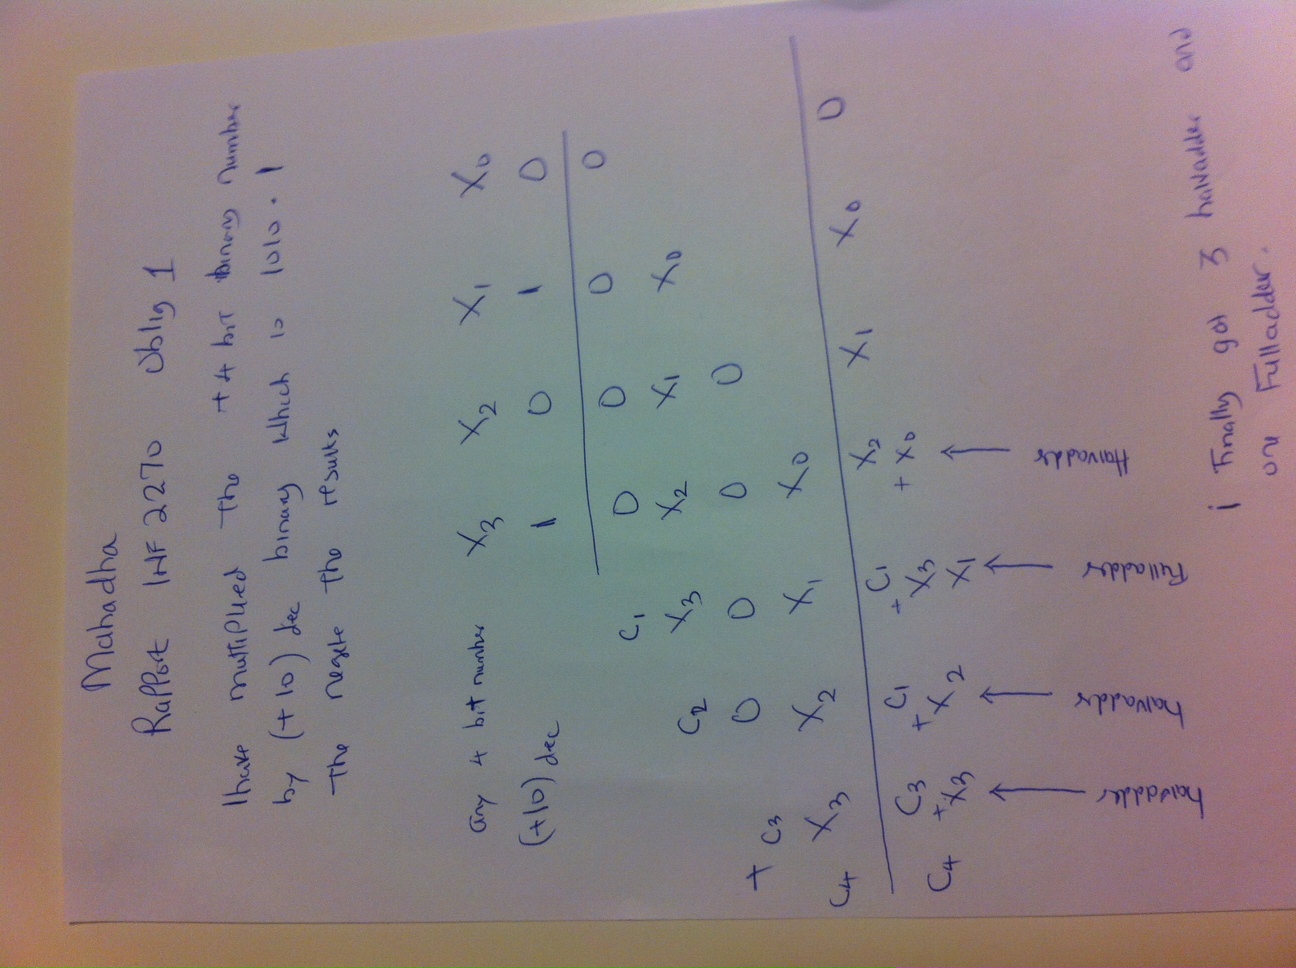 Mahadha
Rapport INF 2270 Oblig 1
I have multiplied the +4 bit binary number
by (+10) dec binary which is 1010 . 1
The negete the results
any 4 bit number X3 X2 X1 X0
(+10) dec 1 0 1 0
C1 0 0 0 0
C2 X3 X2 X1 X0
+ 0 0 0 0
C3
C4 X3 X2 X1 X0
C3 C1 C1 X2 X1 X0 0
C4 + X3 + X2 + X3 + X0
X1
halvddder halvadder Fulladder Halvadder
i Finally got 3 halvadder and
one Fulladder.